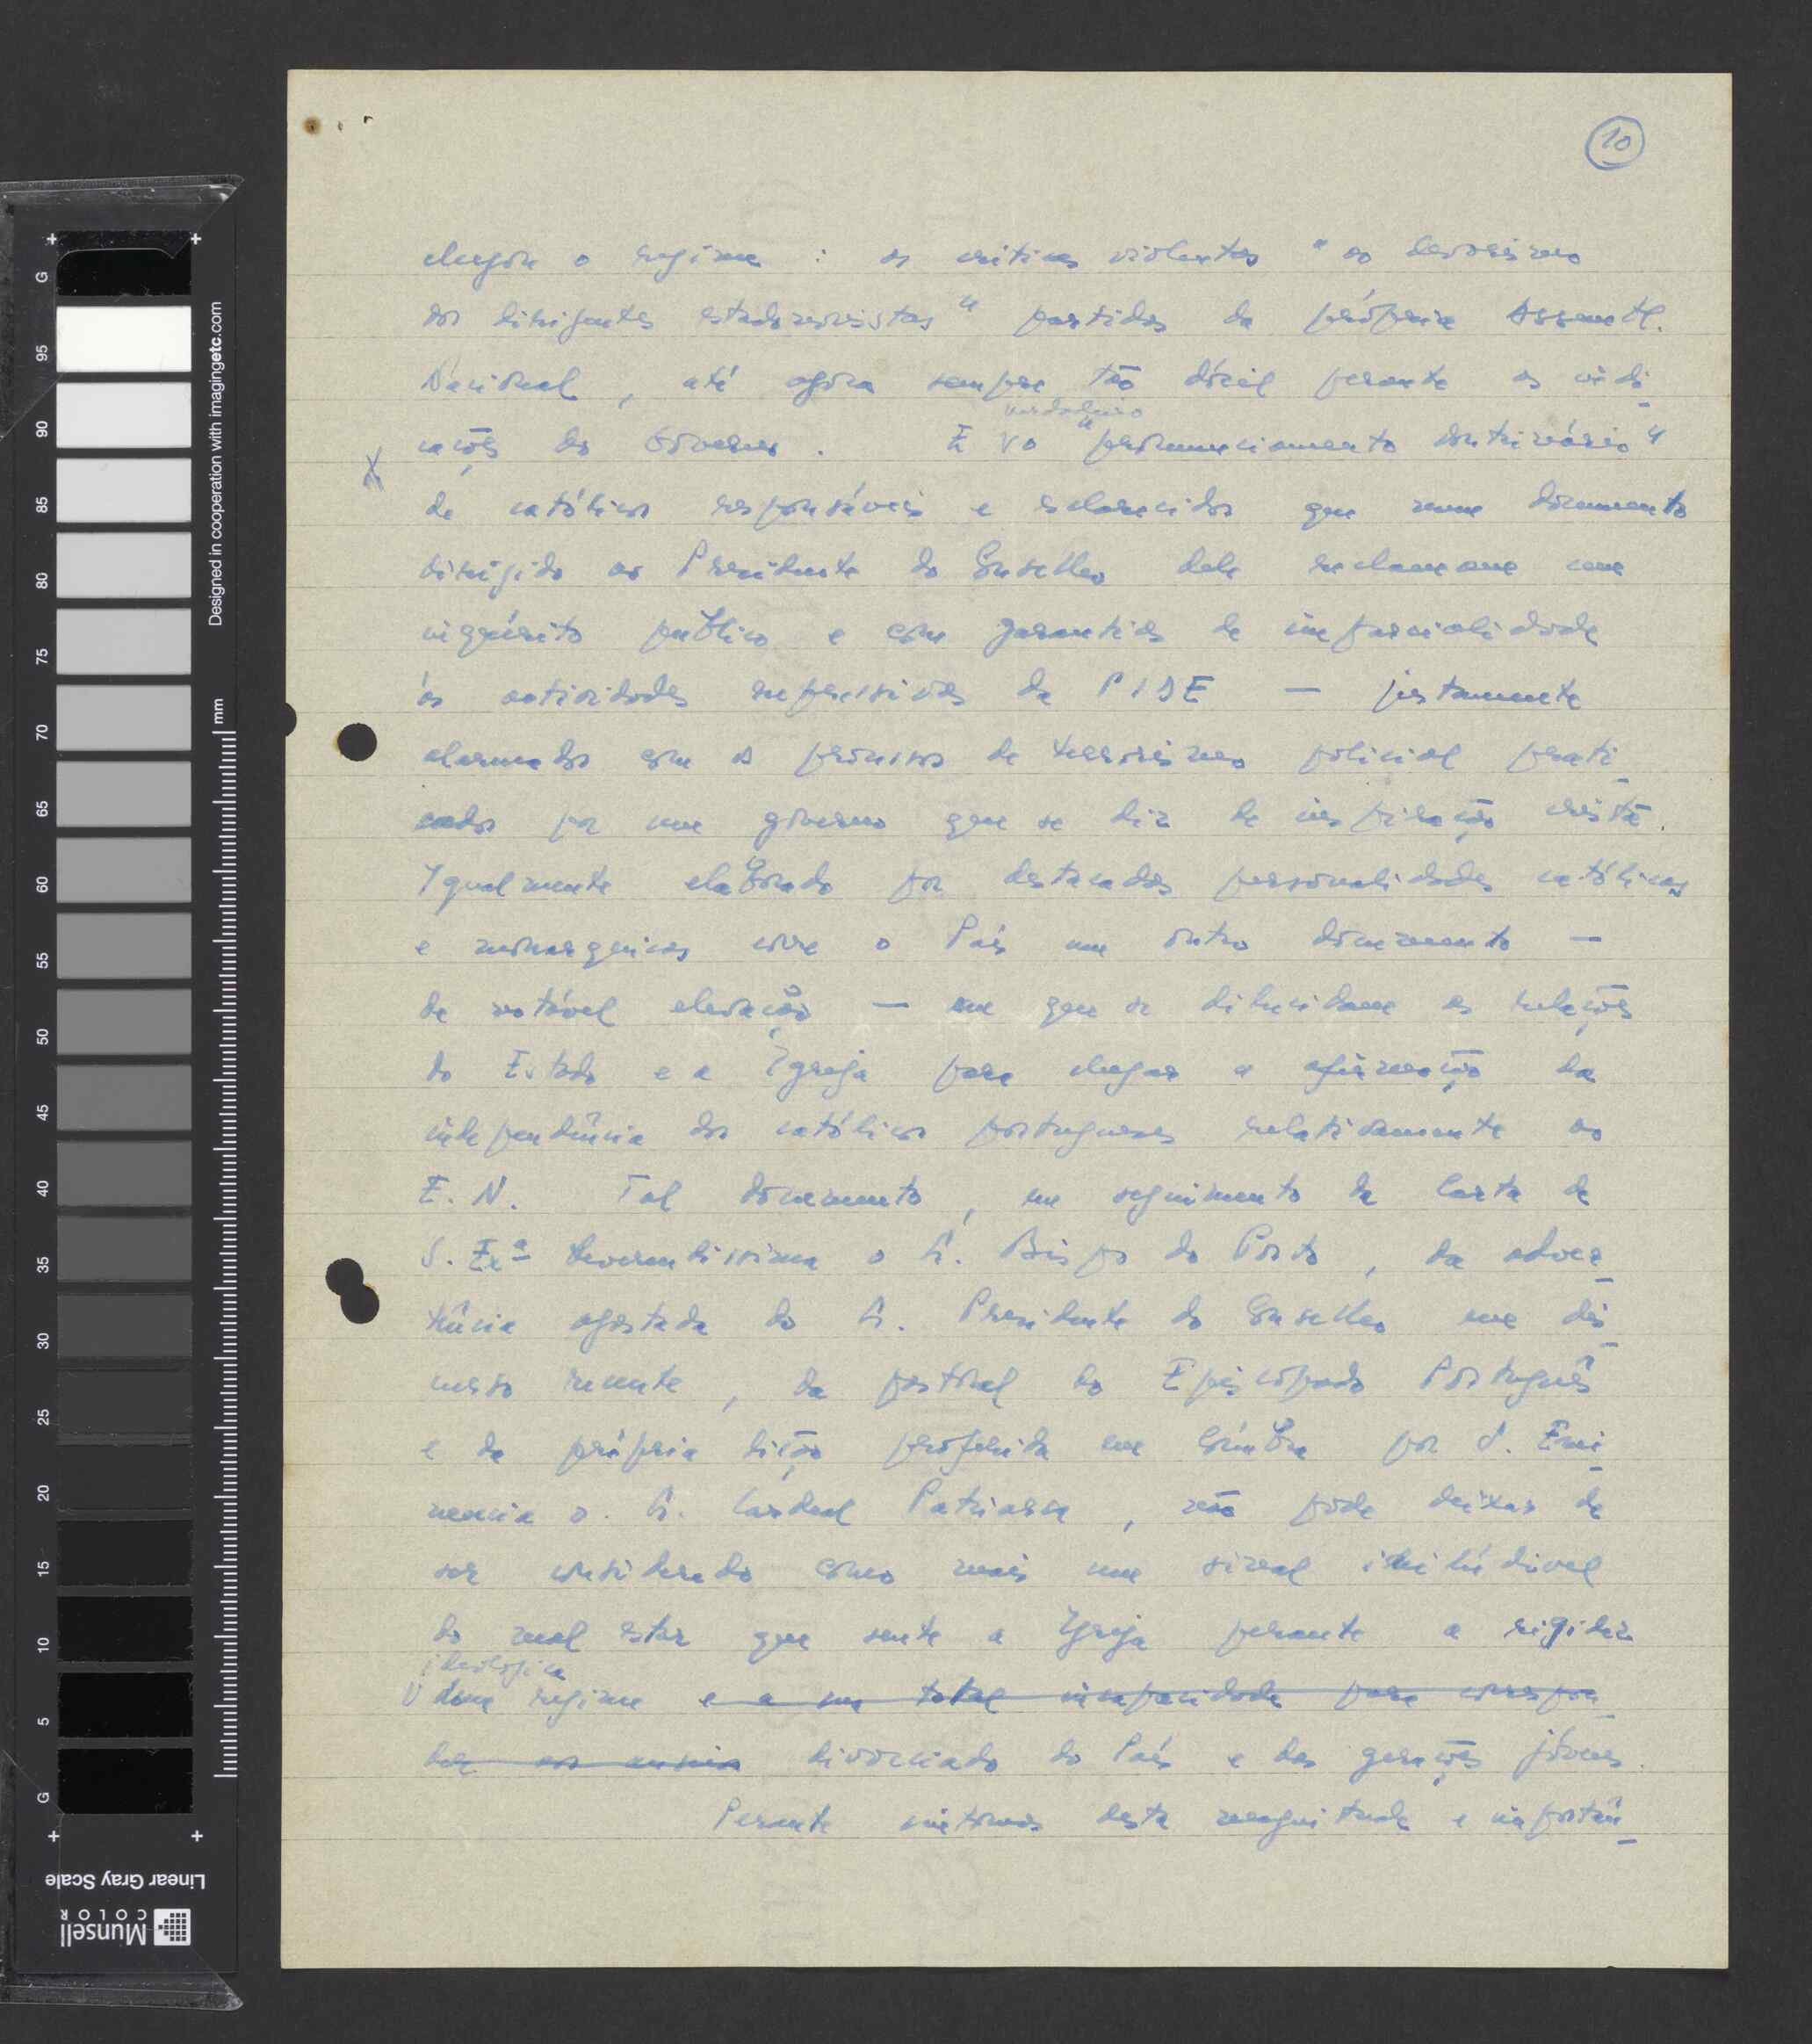 10
chegou o regime : as críticas violentas "ao
dos dirigentes estadonovistas" partidas da própria Assembl.
Nacional, até agora sempre tão dócil perante as indi-
cações do Govêrno. E o verdadeiro "pronunciamento doutrinário"
de católicos responsáveis e esclarecidos que num documento
dirigido ao Presidente do Conselho dele reclamam um
inquérito público e com garantias de imparcialidade
às actividades repressivas da PIDE — justamente
alarmados com os processos de terrorismo policial prati-
cados por um govêrno que se diz de inspiração cristã.
Igualmente elaborado por destacadas personalidades católicas
e monarquicas corre o País um outro documento —
de notável elevação — em que se dilucidam as relações
do Estado e a Igreja para chegar a afirmação da
independência dos católicos portugueses relativamente ao
E. N. Tal documento, no seguimento da Carta de
S. Exª Reverendissima o Sr. Bispo do Porto, da adver-
tência agastada do Sr. Presidente do Conselho em dis-
curso recente, da pastoral do Episcopado Português
e da própria lição proferida em Coimbra por S. Emi-
nencia o. Sr. Cardeal Patriarca, não pode deixar de
ser considerado como mais um sinal iniludivel
do mal estar que sente a Igreja perante a rigidez
ideológica
dum regime e a sua total incapacidade para correspon-
der aos anseios divorciado do País e das gerações jóvens.
Perante sintomas desta magnitude e importân-
Designed in cooperation with imagingetc.com
mm
G 95 90 85 80 75 70 65 60 55 50 45 40 35 30 25 20 15 10 5 G
Linear Gray Scale
Munsell
COLOR